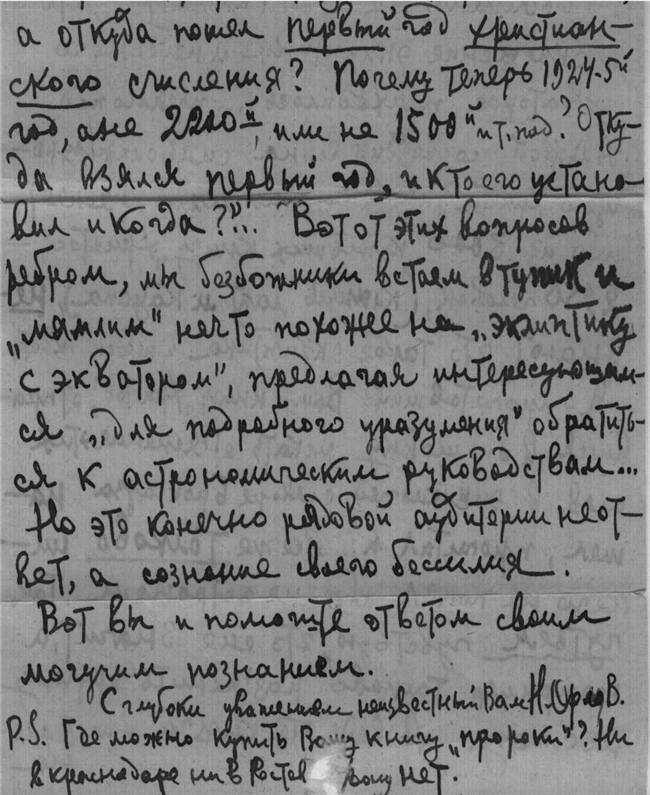 а откуда пошел первый год христиан-
ского счисления? Почему теперь 1924-5й
год, а не 2200й, или не 1500й и т. под.? Отку-
да взялся первый год, и кто его устано-
вил и когда?"... Вот от этих вопросов
ребром, мы безбожники встаем в тупик и
„мямлим" нечто похожее на „эклиптику
с экватором", предлагая интересующим-
ся „для подробного уразумения" обратить-
ся к астрономическим руководствам...
Но это конечно рядовой аудитерии не от-
вет, а сознание своего бессилия.
Вот вы и помогите ответом своим
могучим познанием.
С глубоки уважением неизвестный Вам Н. Орлов.
P.S. Где можно купить Вашу книгу „пророки"? Ни
в Краснодаре ни в Ростов нет.